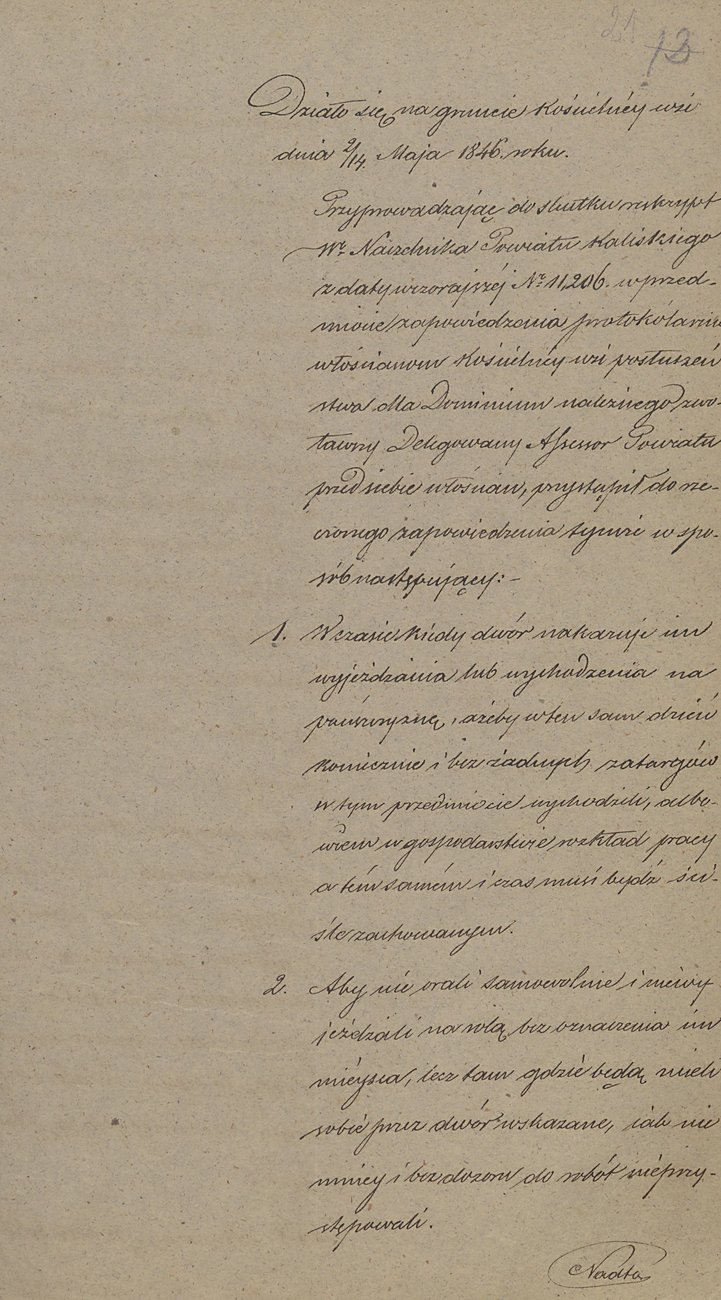 21 13
Działo się na gruncie Kościelnéy wsi
dnia 2/14. Maja 1846. roku.
Przyprowadzając do skutku reskrypt
Wo. Naczelnika Powiatu Kaliskiego
z daty wczorajszéj No. 11,206. w przed-
miocie zapowiedzenia protokólarnie
włościanom Kościelnéy wsi posłuszeń
stwa dla Dominium należnego, zwo-
ławszy Delegowany Assessor Powiatu
przed siebie włościan, przystąpił do rze-
czonego zapowiedzenia tymże w spo-
sób następujący: -
1. W czasie kiedy dwór nakazuje im
wyjeżdżania lub wychodzenia na
pańszczyznę, ażeby w ten sam dzień
koniecznie i bez żadnych zatargów
w tym przedmiocie wychodzili, albo-
wiem w gospodarstwie rozkład pracy
a tém samém i czas musi bydź ści-
śle zachowanym.
2. Aby nie orali samowolnie i niewy
jeżdżali na rolą bez oznaczenia im
miéysca, lecz tam gdzie będą mieli
sobie przez dwór wskazane, iak nie
mniey i bez dozoru do robót nieprzy-
stępowali.
Nadto